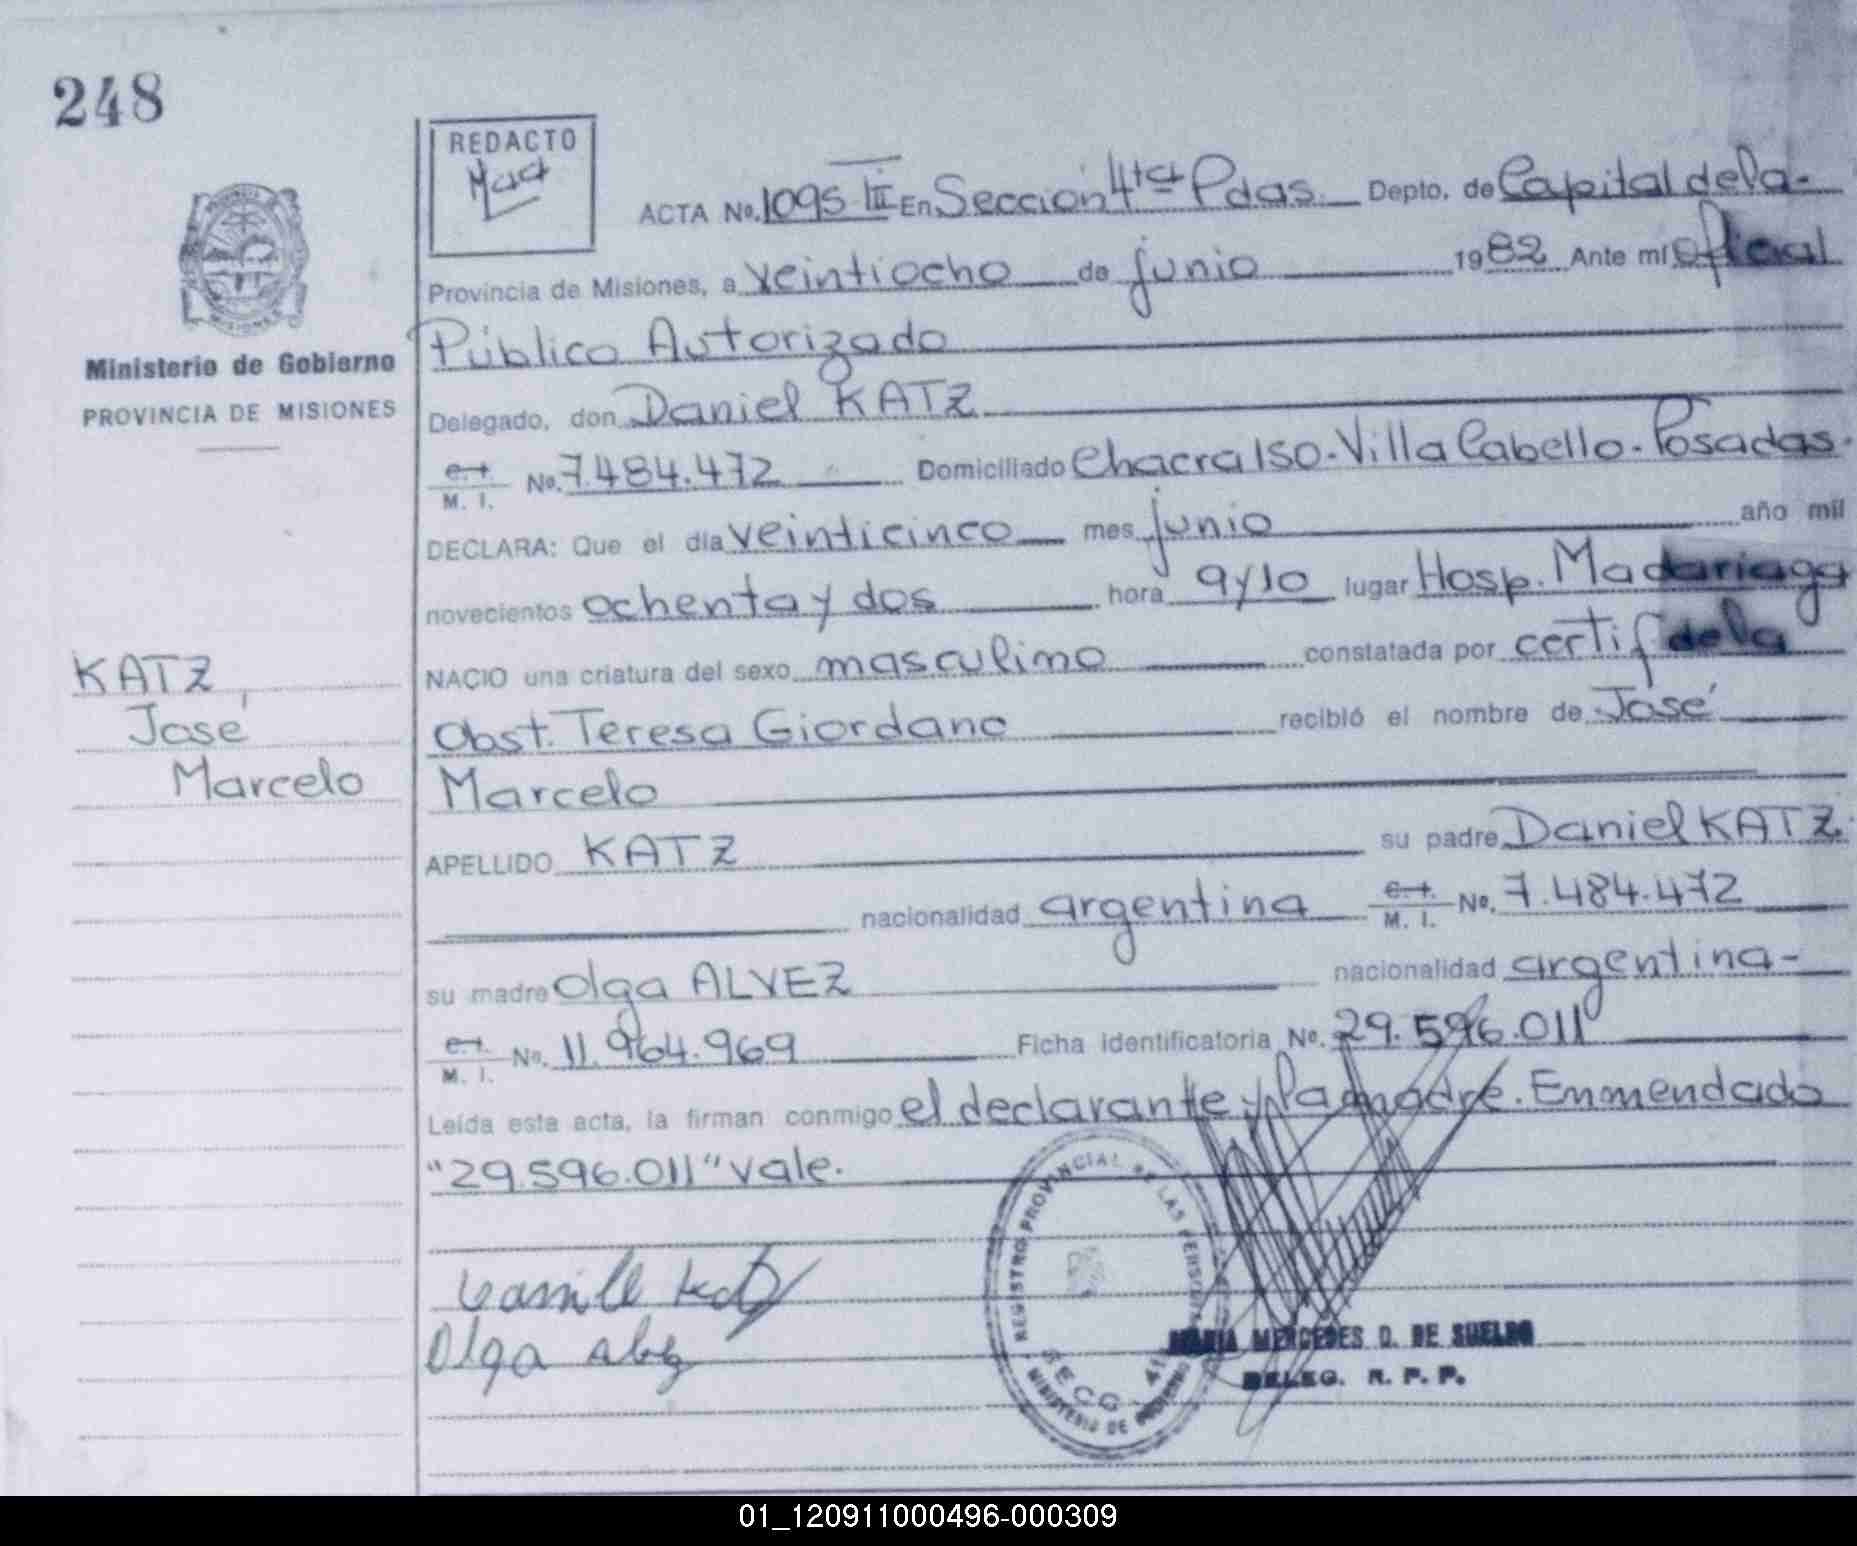 248
REDACTO
ACTA No. 1095 III En Sección 4ta Pdas. Depto. de Capital de la-
Provincia de Misiones, a veintiocho de junio 1982 Ante mí oficial
Público Autorizado
Ministerio de Gobierno
PROVINCIA DE MISIONES
Delegado, don Daniel KATZ
C.I. M. I. No. 7.484.472 Domiciliado Chacra 150-Villa Cabello-Posadas.
DECLARA: Que el día veinticinco mes junio año mil
novecientos ochenta y dos hora 9 y 10 lugar Hosp. Madariaga
NACIO una criatura del sexo masculino constatada por certif de la
Obst. Teresa Giordano recibió el nombre de José
Marcelo
KATZ,
José
Marcelo
APELLIDO KATZ su padre Daniel KATZ
nacionalidad argentina C.I. M. I. No. 7.484.472
su madre Olga ALVEZ nacionalidad argentina-
C.I. M. I. No. 11.964.969 Ficha identificatoria No. 29.596.011
Leída esta acta, la firman conmigo el declarante y la madre. Enmendado
"29.596.011" vale.
REGISTRO PROVINCIAL DE LAS PERSONAS
SECC. 4ta
MINISTERIO DE GOBIERNO
Olga Alvez
MARIA MERCEDES D. DE SUELDO
DELEG. R. P. P.
01_120911000496-000309